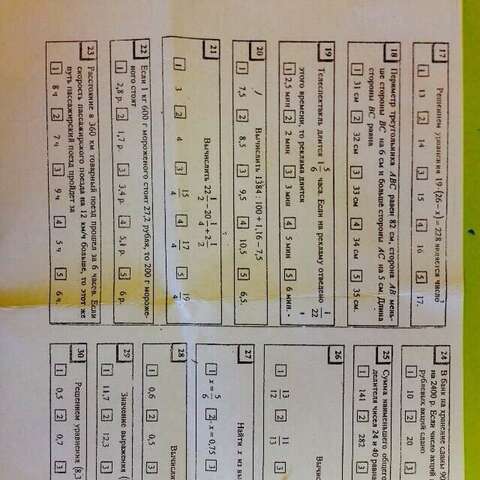 17 Решением уравнения 19·(26−x)=228 является число
1 13 2 14 3 15 4 16 5 17.
18 Периметр треугольника ABC равен 82 см, сторона AB мень-
ше стороны BC на 6 см и больше стороны AC на 5 см. Длина
стороны BC равна
1 31 см 2 32 см 3 33 см 4 34 см 5 35 см.
19 Телеспектакль длится 1 5/6 часа. Если на рекламу отведено 1/22
этого времени, то реклама длится
1 2,5 мин 2 2 мин 3 3 мин 4 5 мин 5 6 мин.
20 Вычислить 1384:100+1,16−7,5
1 7,5 2 8,5 3 9,5 4 10,5 5 6,5.
21 Вычислить
1 3 2 4 3 15/4 4 17/4 5 19/4
22 Если 1 кг 600 г мороженого стоят 27,2 рубля, то 200 г мороже-
ного стоят
1 2,8 р. 2 1,7 р. 3 3,4 р. 4 5,1 р. 5 6 р.
23 Расстояние в 360 км товарный поезд прошел за 6 часов. Если
скорость пассажирского поезда на 12 км/ч больше, то этот же
путь пассажирский поезд пройдет за
1 8 ч 2 7 ч 3 9 ч 4 5 ч 5 6 ч.
24 В банк на хранение сданы 90
на 2400 р. Если число акций
рублевых акций сдано
1 10 2 20 3
25 Сумма наименьшего общего
делителя чисел 24 и 40 равна
1 141 2 282 3
26
1 13/12 2 11/13 3
27 Найти x из
1 x=5/6 2 x=0,75 3
28 Вычисли
1 0,6 2 0,5 3
29 Значение выражения (
1 11,7 2 12,3 3
30 Решением уравнения (8,3
1 0,5 2 0,7 3